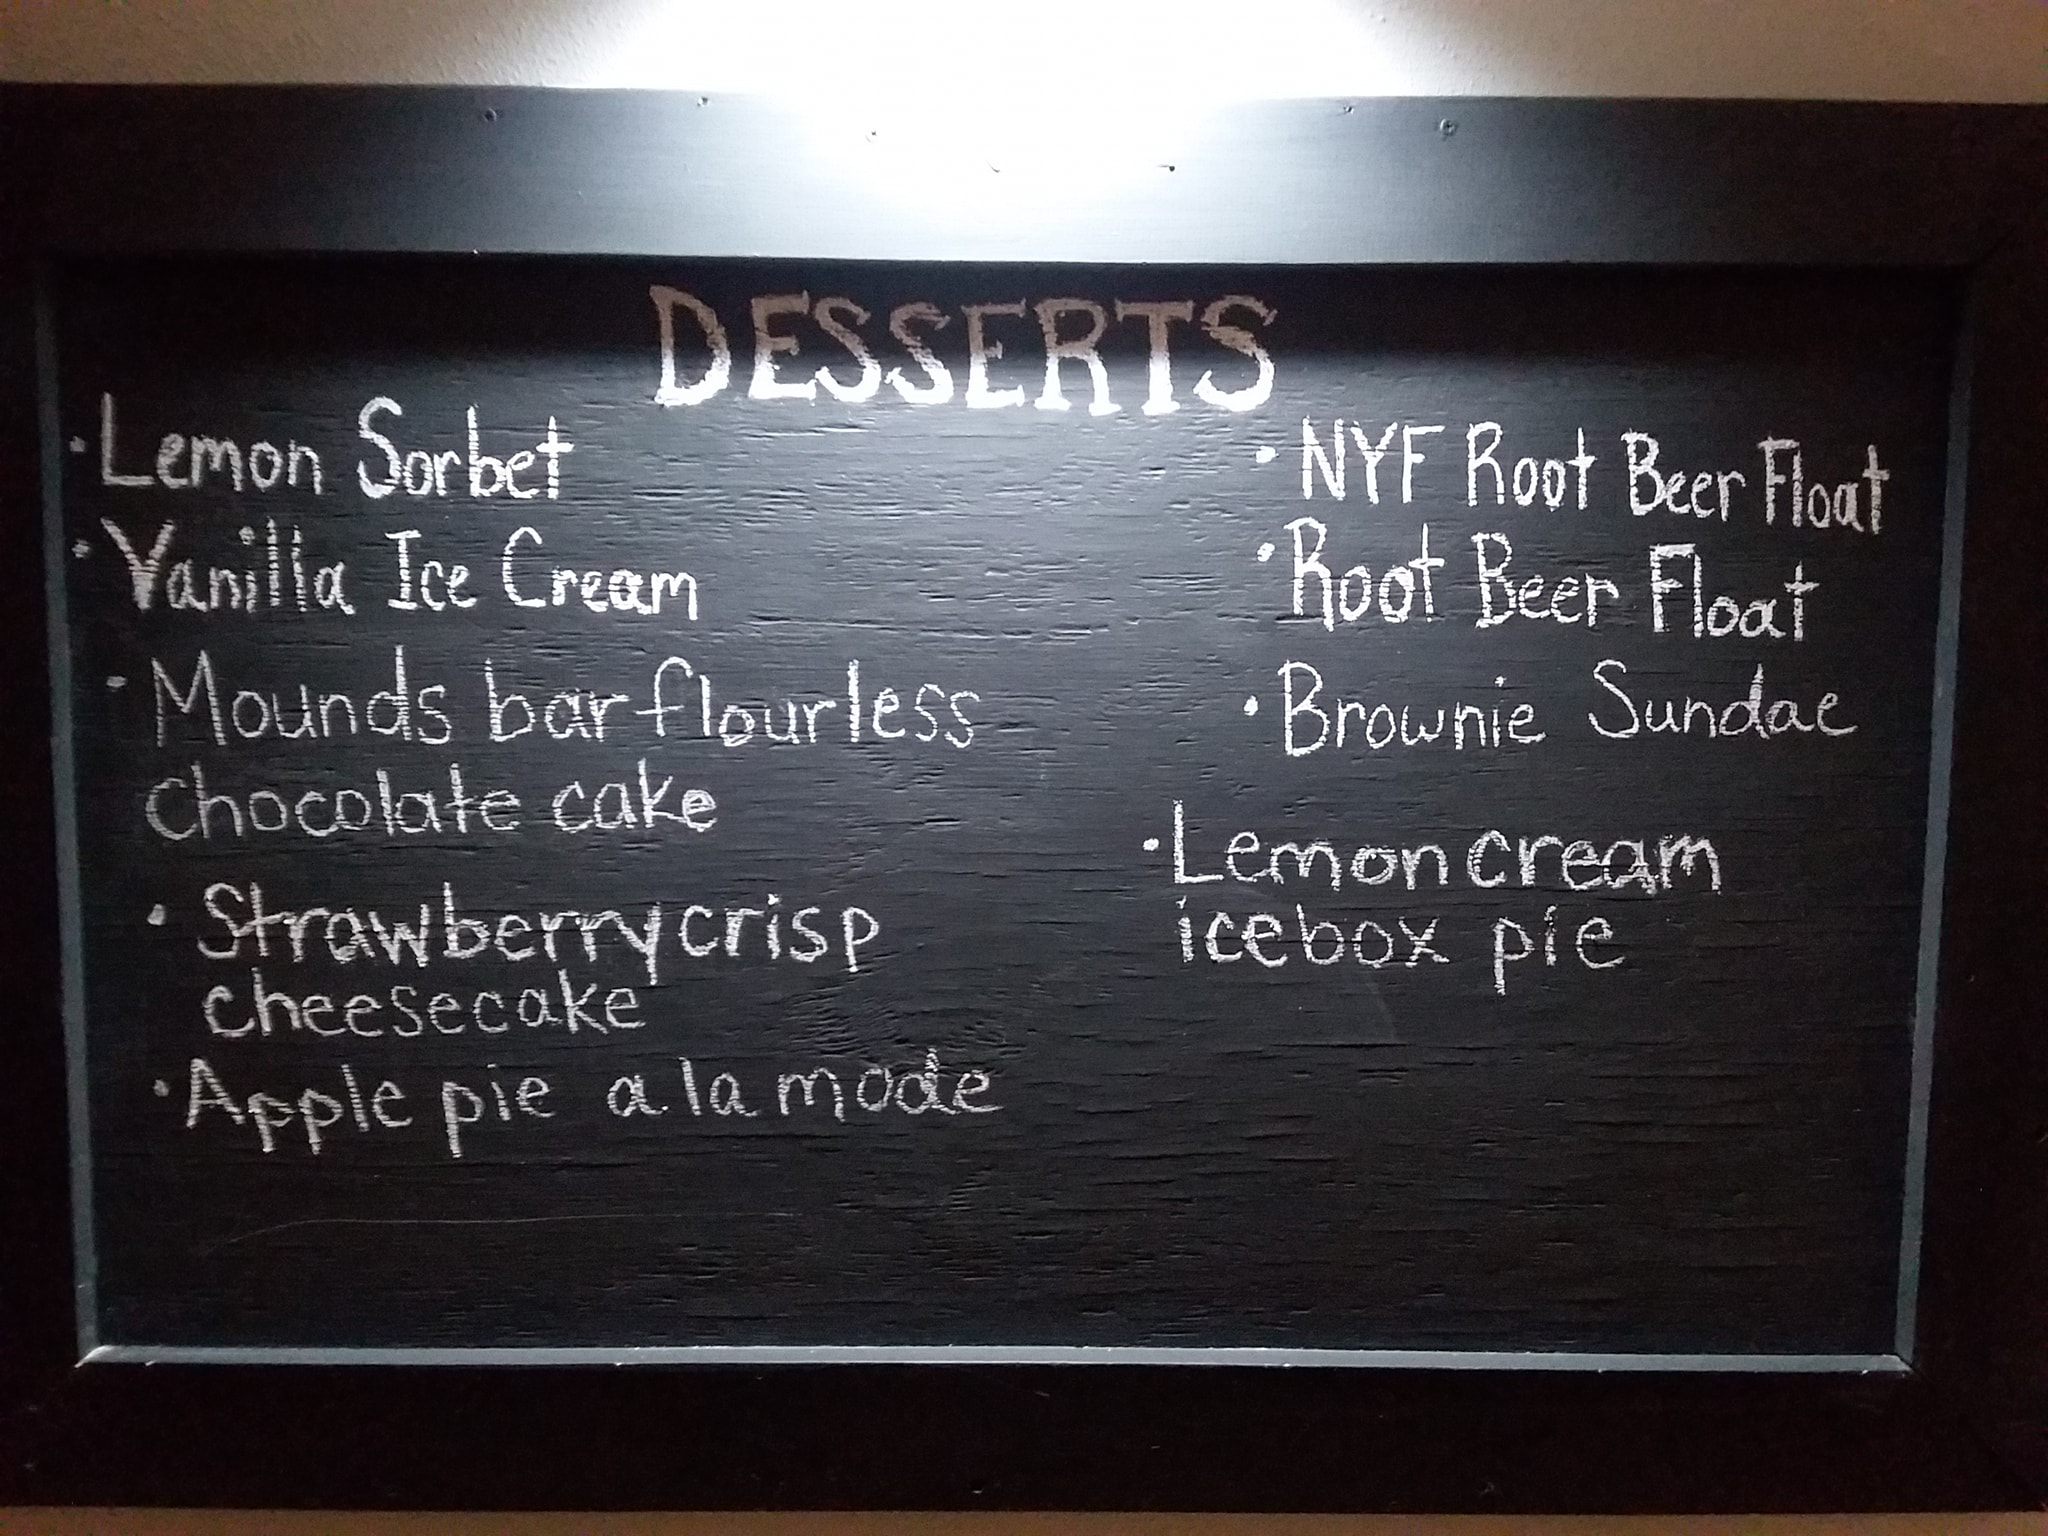 DESSERTS
• Lemon Sorbet
• Vanilla Ice Cream
• Mounds bar flourless
chocolate cake
• Strawberry crisp
cheesecake
• Apple pie a la mode
• NYF Root Beer Float
• Root Beer Float
• Brownie Sundae
• Lemon cream
icebox pie